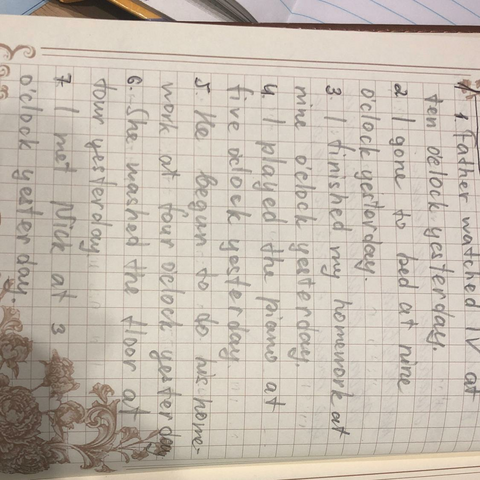 1. Father watched TV at
ten oclock yesterday.
2. I gone to bed at nine
o'clock yesterday.
3. I finished my homework at
nine o'clock yesterday.
4. I played the piano at
five o'clock yesterday
5. He begun to do his home-
work at four o'clock yesterday
6. She washed the floor at
four yesterday
7. I met Nick at 3
o'clock yesterday.